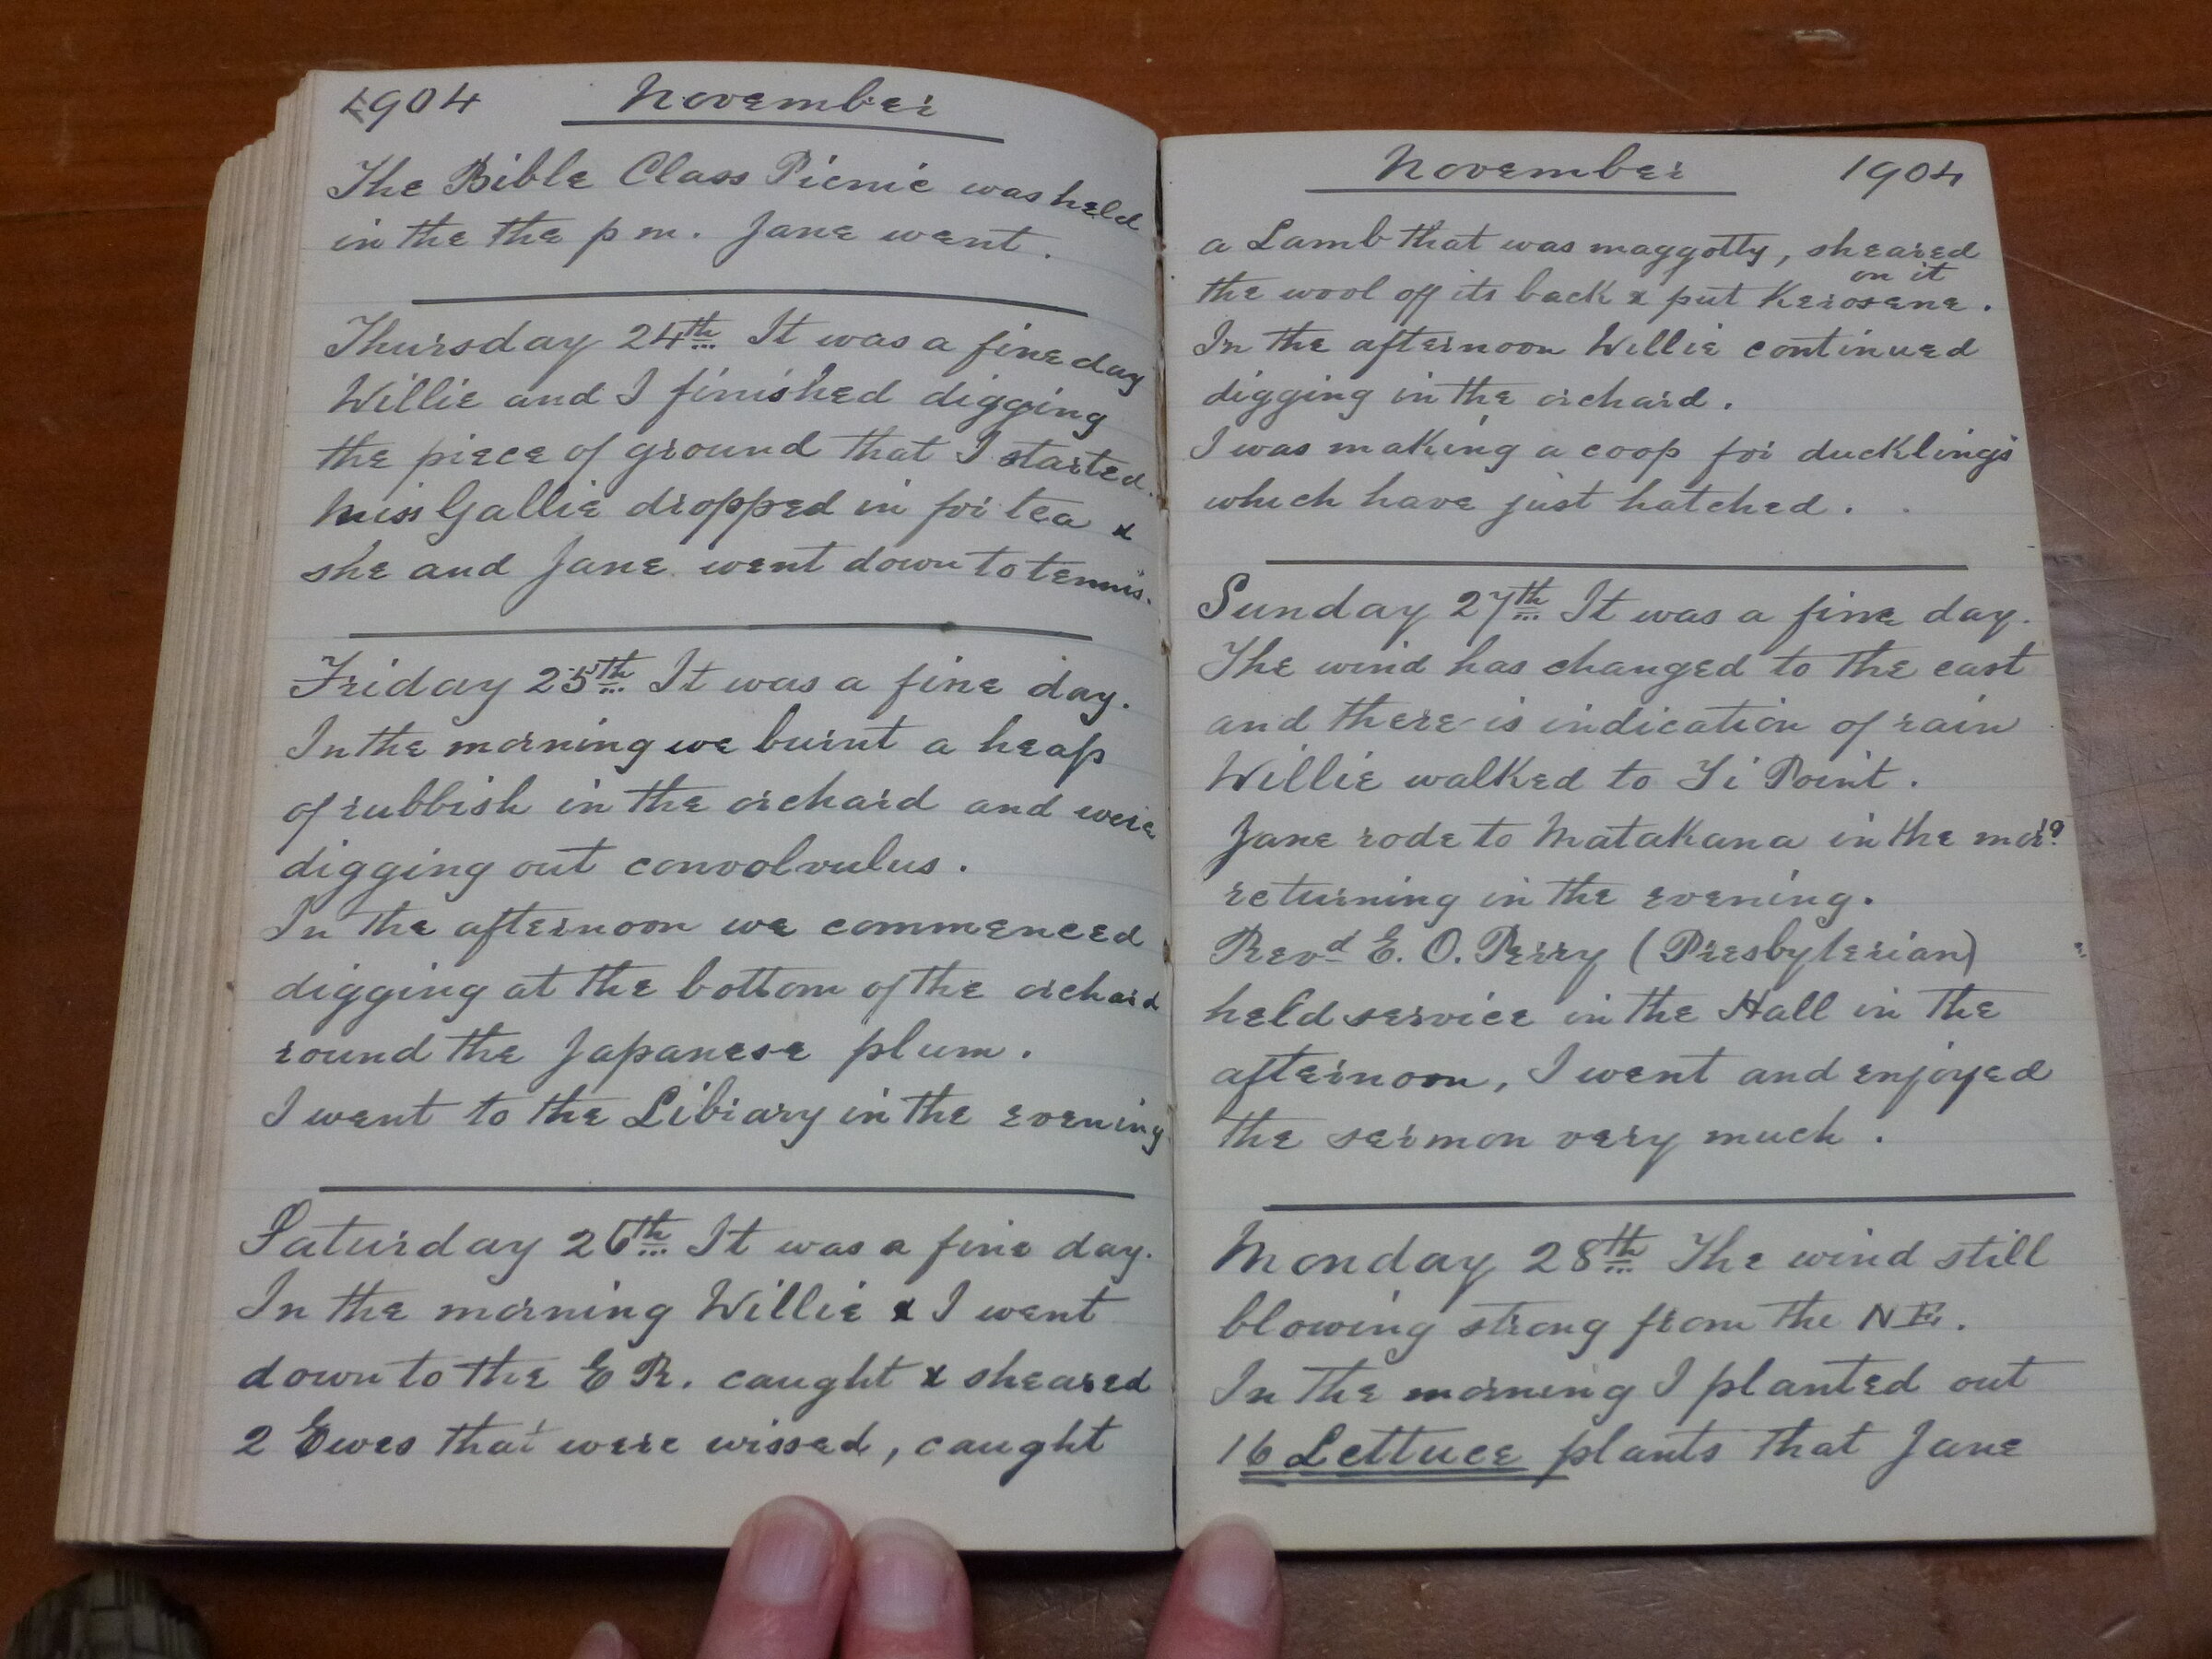 1904 November
The Bible Class Picnic was held
in the the p m. Jane went.
Thursday 24th It was a fine day
Willie and I finished digging
the piece of ground that I started.
Miss Gallie dropped in for tea &
she and Jane went down to tennis.
Friday 25th It was a fine day.
In the morning we burnt a heap
of rubbish in the orchard and were
digging out convolvulus.
In the afternoon we commenced
digging at the bottom of the orchard
round the Japanese plum.
I went to the Library in the evening
Saturday 26th It was a fine day.
In the morning Willie & I went
down to the E R. caught & sheared
2 Ewes that were wissed, caught
November 1904
a Lamb that was maggotty, sheared
on it
the wool off its back & put Kerosene.
In the afternoon Willie continued
digging in the orchard.
I was making a coop for ducklings
which have just hatched.
Sunday 27th It was a fine day.
The wind has changed to the east
and there is indication of rain
Willie walked to Ti Point.
Jane rode to Matakana in the morg
returning in the evening.
Revd E. O. Perry (Presbyterian)
held service in the Hall in the
afternoon, I went and enjoyed
the sermon very much.
Monday 28th The wind still
blowing strong from the NE.
In the morning I planted out
16 Lettuce plants that Jane